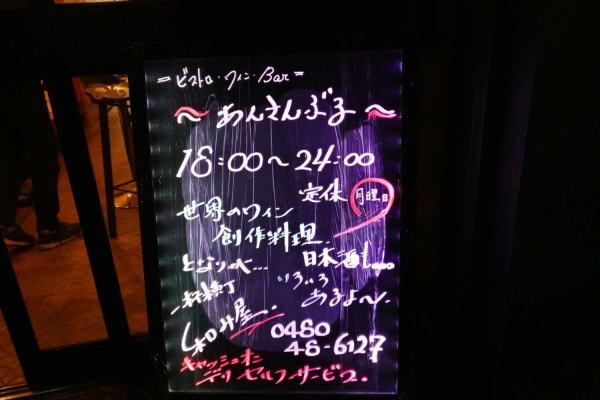 =ビストロ・ワイン・Bar=
～あんさんぶる～
18:00～24:00
定休 月曜日
世界のワイン
創作料理
となりは... 日本酒も
いろいろ
横丁 あるよ〜。
0480
48-6127
キャッシュオン
デリ セルフサービス.